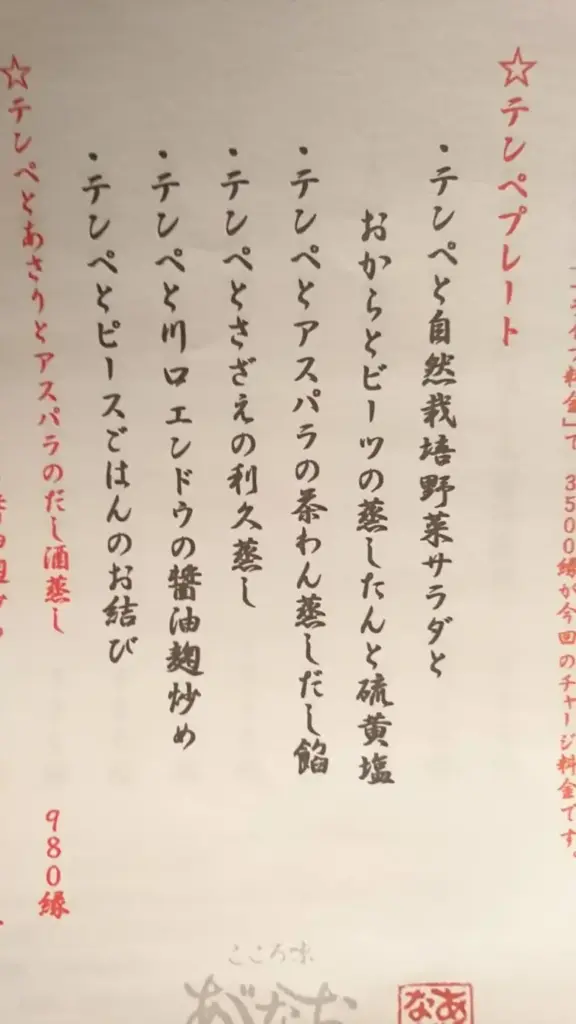 ライブ料金」で 3500縁が今回のチャージ料金です。
☆テンペプレート
・テンペと自然栽培野菜サラダと
おからとビーツの蒸したんと硫黄塩
・テンペとアスパラの茶わん蒸しだし餡
・テンペとさざえの利久蒸し
・テンペと川口エンドウの醤油麹炒め
・テンペとピースごはんのお結び
☆テンペとあさりとアスパラのだし酒蒸し 980縁
こころ味
あぐなお
あな